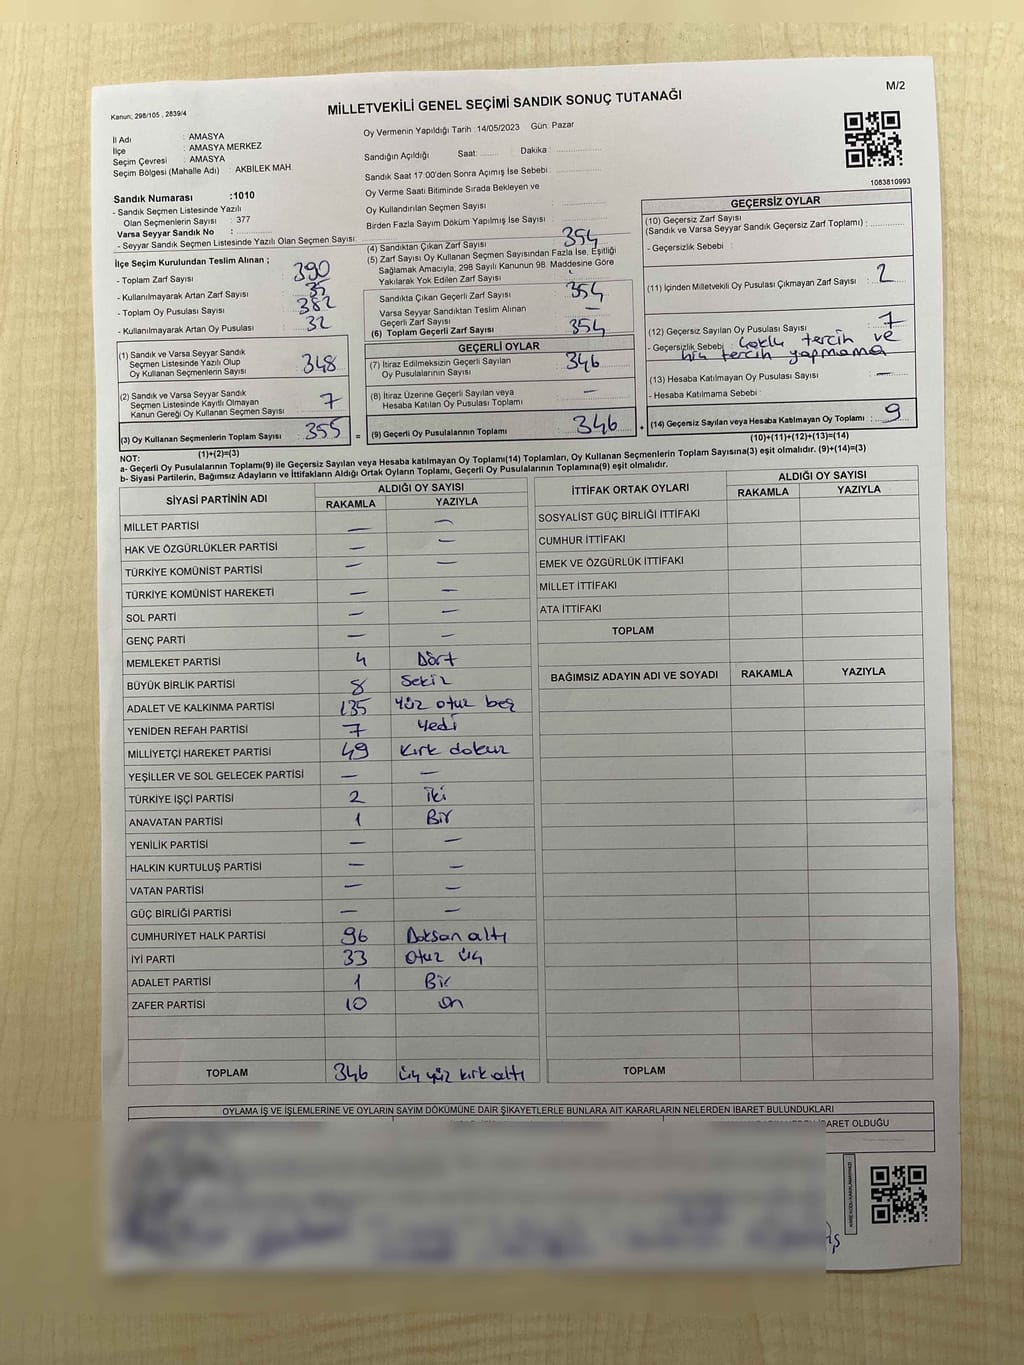 M/2
Kanun, 298/105 , 2839/4
MİLLETVEKİLİ GENEL SEÇİMİ SANDIK SONUÇ TUTANAĞI
İl Adı : AMASYA
İlçe : AMASYA MERKEZ
Seçim Çevresi : AMASYA
Seçim Bölgesi (Mahalle Adı) : AKBİLEK MAH
Sandık Numarası :1010
- Sandık Seçmen Listesinde Yazılı
Olan Seçmenlerin Sayısı : 377
Varsa Seyyar Sandık No :
- Seyyar Sandık Seçmen Listesinde Yazılı Olan Seçmen Sayısı:
İlçe Seçim Kurulundan Teslim Alınan ;
- Toplam Zarf Sayısı : 390
- Kullanılmayarak Artan Zarf Sayısı : 35
- Toplam Oy Pusulası Sayısı : 382
- Kullanılmayarak Artan Oy Pusulası : 32
(1) Sandık ve Varsa Seyyar Sandık
Seçmen Listesinde Yazılı Olup
Oy Kullanan Seçmenlerin Sayısı : 348
(2) Sandık ve Varsa Seyyar Sandık
Seçmen Listesinde Kayıtlı Olmayan
Kanun Gereği Oy Kullanan Seçmen Sayısı : 7
(3) Oy Kullanan Seçmenlerin Toplam Sayısı : 355
(1)+(2)=(3)
Oy Vermenin Yapıldığı Tarih : 14/05/2023 Gün: Pazar
Sandığın Açıldığı Saat: Dakika :
Sandık Saat 17:00'den Sonra Açımış İse Sebebi :
Oy Verme Saati Bitiminde Sırada Bekleyen ve
Oy Kullandırılan Seçmen Sayısı :
Birden Fazla Sayım Döküm Yapılmış İse Sayısı :
(4) Sandıktan Çıkan Zarf Sayısı : 354
(5) Zarf Sayısı Oy Kullanan Seçmen Sayısından Fazla İse, Eşitliği
Sağlamak Amacıyla, 298 Sayılı Kanunun 98. Maddesine Göre
Yakılarak Yok Edilen Zarf Sayısı :
Sandıkta Çıkan Geçerli Zarf Sayısı : 354
Varsa Seyyar Sandıktan Teslim Alınan
Geçerli Zarf Sayısı : —
(6) Toplam Geçerli Zarf Sayısı : 354
GEÇERLİ OYLAR
(7) İtiraz Edilmeksizin Geçerli Sayılan
Oy Pusulalarının Sayısı : 346
(8) İtiraz Üzerine Geçerli Sayılan veya
Hesaba Katılan Oy Pusulası Toplamı : —
= (9) Geçerli Oy Pusulalarının Toplamı : 346 +
1063810993
GEÇERSİZ OYLAR
(10) Geçersiz Zarf Sayısı
(Sandık ve Varsa Seyyar Sandık Geçersiz Zarf Toplamı) :
- Geçersizlik Sebebi :
(11) İçinden Milletvekili Oy Pusulası Çıkmayan Zarf Sayısı : 2
(12) Geçersiz Sayılan Oy Pusulası Sayısı : 7
- Geçersizlik Sebebi : Çoklu tercih ve
hiç tercih yapmama
(13) Hesaba Katılmayan Oy Pusulası Sayısı : —
- Hesaba Katılmama Sebebi :
(14) Geçersiz Sayılan veya Hesaba Katılmayan Oy Toplamı : 9
(10)+(11)+(12)+(13)=(14)
NOT:
a- Geçerli Oy Pusulalarının Toplamı(9) ile Geçersiz Sayılan veya Hesaba katılmayan Oy Toplamı(14) Toplamları, Oy Kullanan Seçmenlerin Toplam Sayısına(3) eşit olmalıdır. (9)+(14)=(3)
b- Siyasi Partilerin, Bağımsız Adayların ve İttifakların Aldığı Ortak Oyların Toplamı, Geçerli Oy Pusulalarının Toplamına(9) eşit olmalıdır.
SİYASİ PARTİNİN ADI
ALDIĞI OY SAYISI
RAKAMLA YAZIYLA
MİLLET PARTİSİ — —
HAK VE ÖZGÜRLÜKLER PARTİSİ — —
TÜRKİYE KOMÜNİST PARTİSİ — —
TÜRKİYE KOMÜNİST HAREKETİ — —
SOL PARTİ — —
GENÇ PARTİ — —
MEMLEKET PARTİSİ 4 Dört
BÜYÜK BİRLİK PARTİSİ 8 Sekiz
ADALET VE KALKINMA PARTİSİ 135 Yüz otuz beş
YENİDEN REFAH PARTİSİ 7 Yedi
MİLLİYETÇİ HAREKET PARTİSİ 49 Kırk dokuz
YEŞİLLER VE SOL GELECEK PARTİSİ — —
TÜRKİYE İŞÇİ PARTİSİ 2 İki
ANAVATAN PARTİSİ 1 Bir
YENİLİK PARTİSİ — —
HALKIN KURTULUŞ PARTİSİ — —
VATAN PARTİSİ — —
GÜÇ BİRLİĞİ PARTİSİ — —
CUMHURİYET HALK PARTİSİ 96 Doksan altı
İYİ PARTİ 33 Otuz üç
ADALET PARTİSİ 1 Bir
ZAFER PARTİSİ 10 On
TOPLAM 346 Üç yüz kırk altı
İTTİFAK ORTAK OYLARI
ALDIĞI OY SAYISI
RAKAMLA YAZIYLA
SOSYALİST GÜÇ BİRLİĞİ İTTİFAKI
CUMHUR İTTİFAKI
EMEK VE ÖZGÜRLÜK İTTİFAKI
MİLLET İTTİFAKI
ATA İTTİFAKI
TOPLAM
BAĞIMSIZ ADAYIN ADI VE SOYADI RAKAMLA YAZIYLA
TOPLAM
OYLAMA İŞ VE İŞLEMLERİNE VE OYLARIN SAYIM DÖKÜMÜNE DAİR ŞİKAYETLERLE BUNLARA AİT KARARLARIN NELERDEN İBARET BULUNDUKLARI
İBARET OLDUĞU